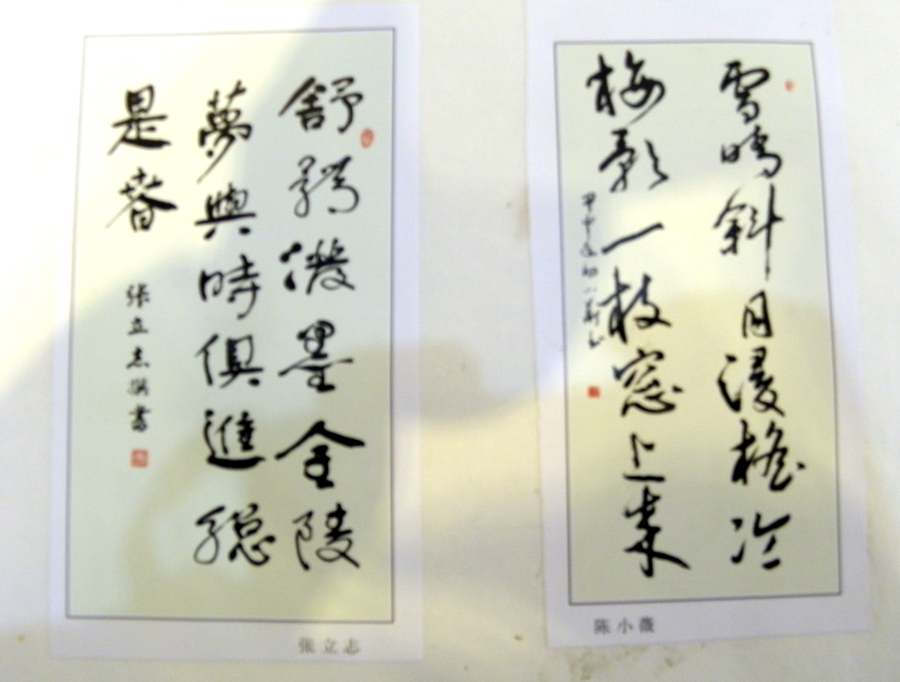 舒潑墨金陵
夢與時俱進總
是春
张立志撰書
张立志
雪晴斜月浸檐冷
梅影一枝窓上来
甲申年初小薇书
陈小薇